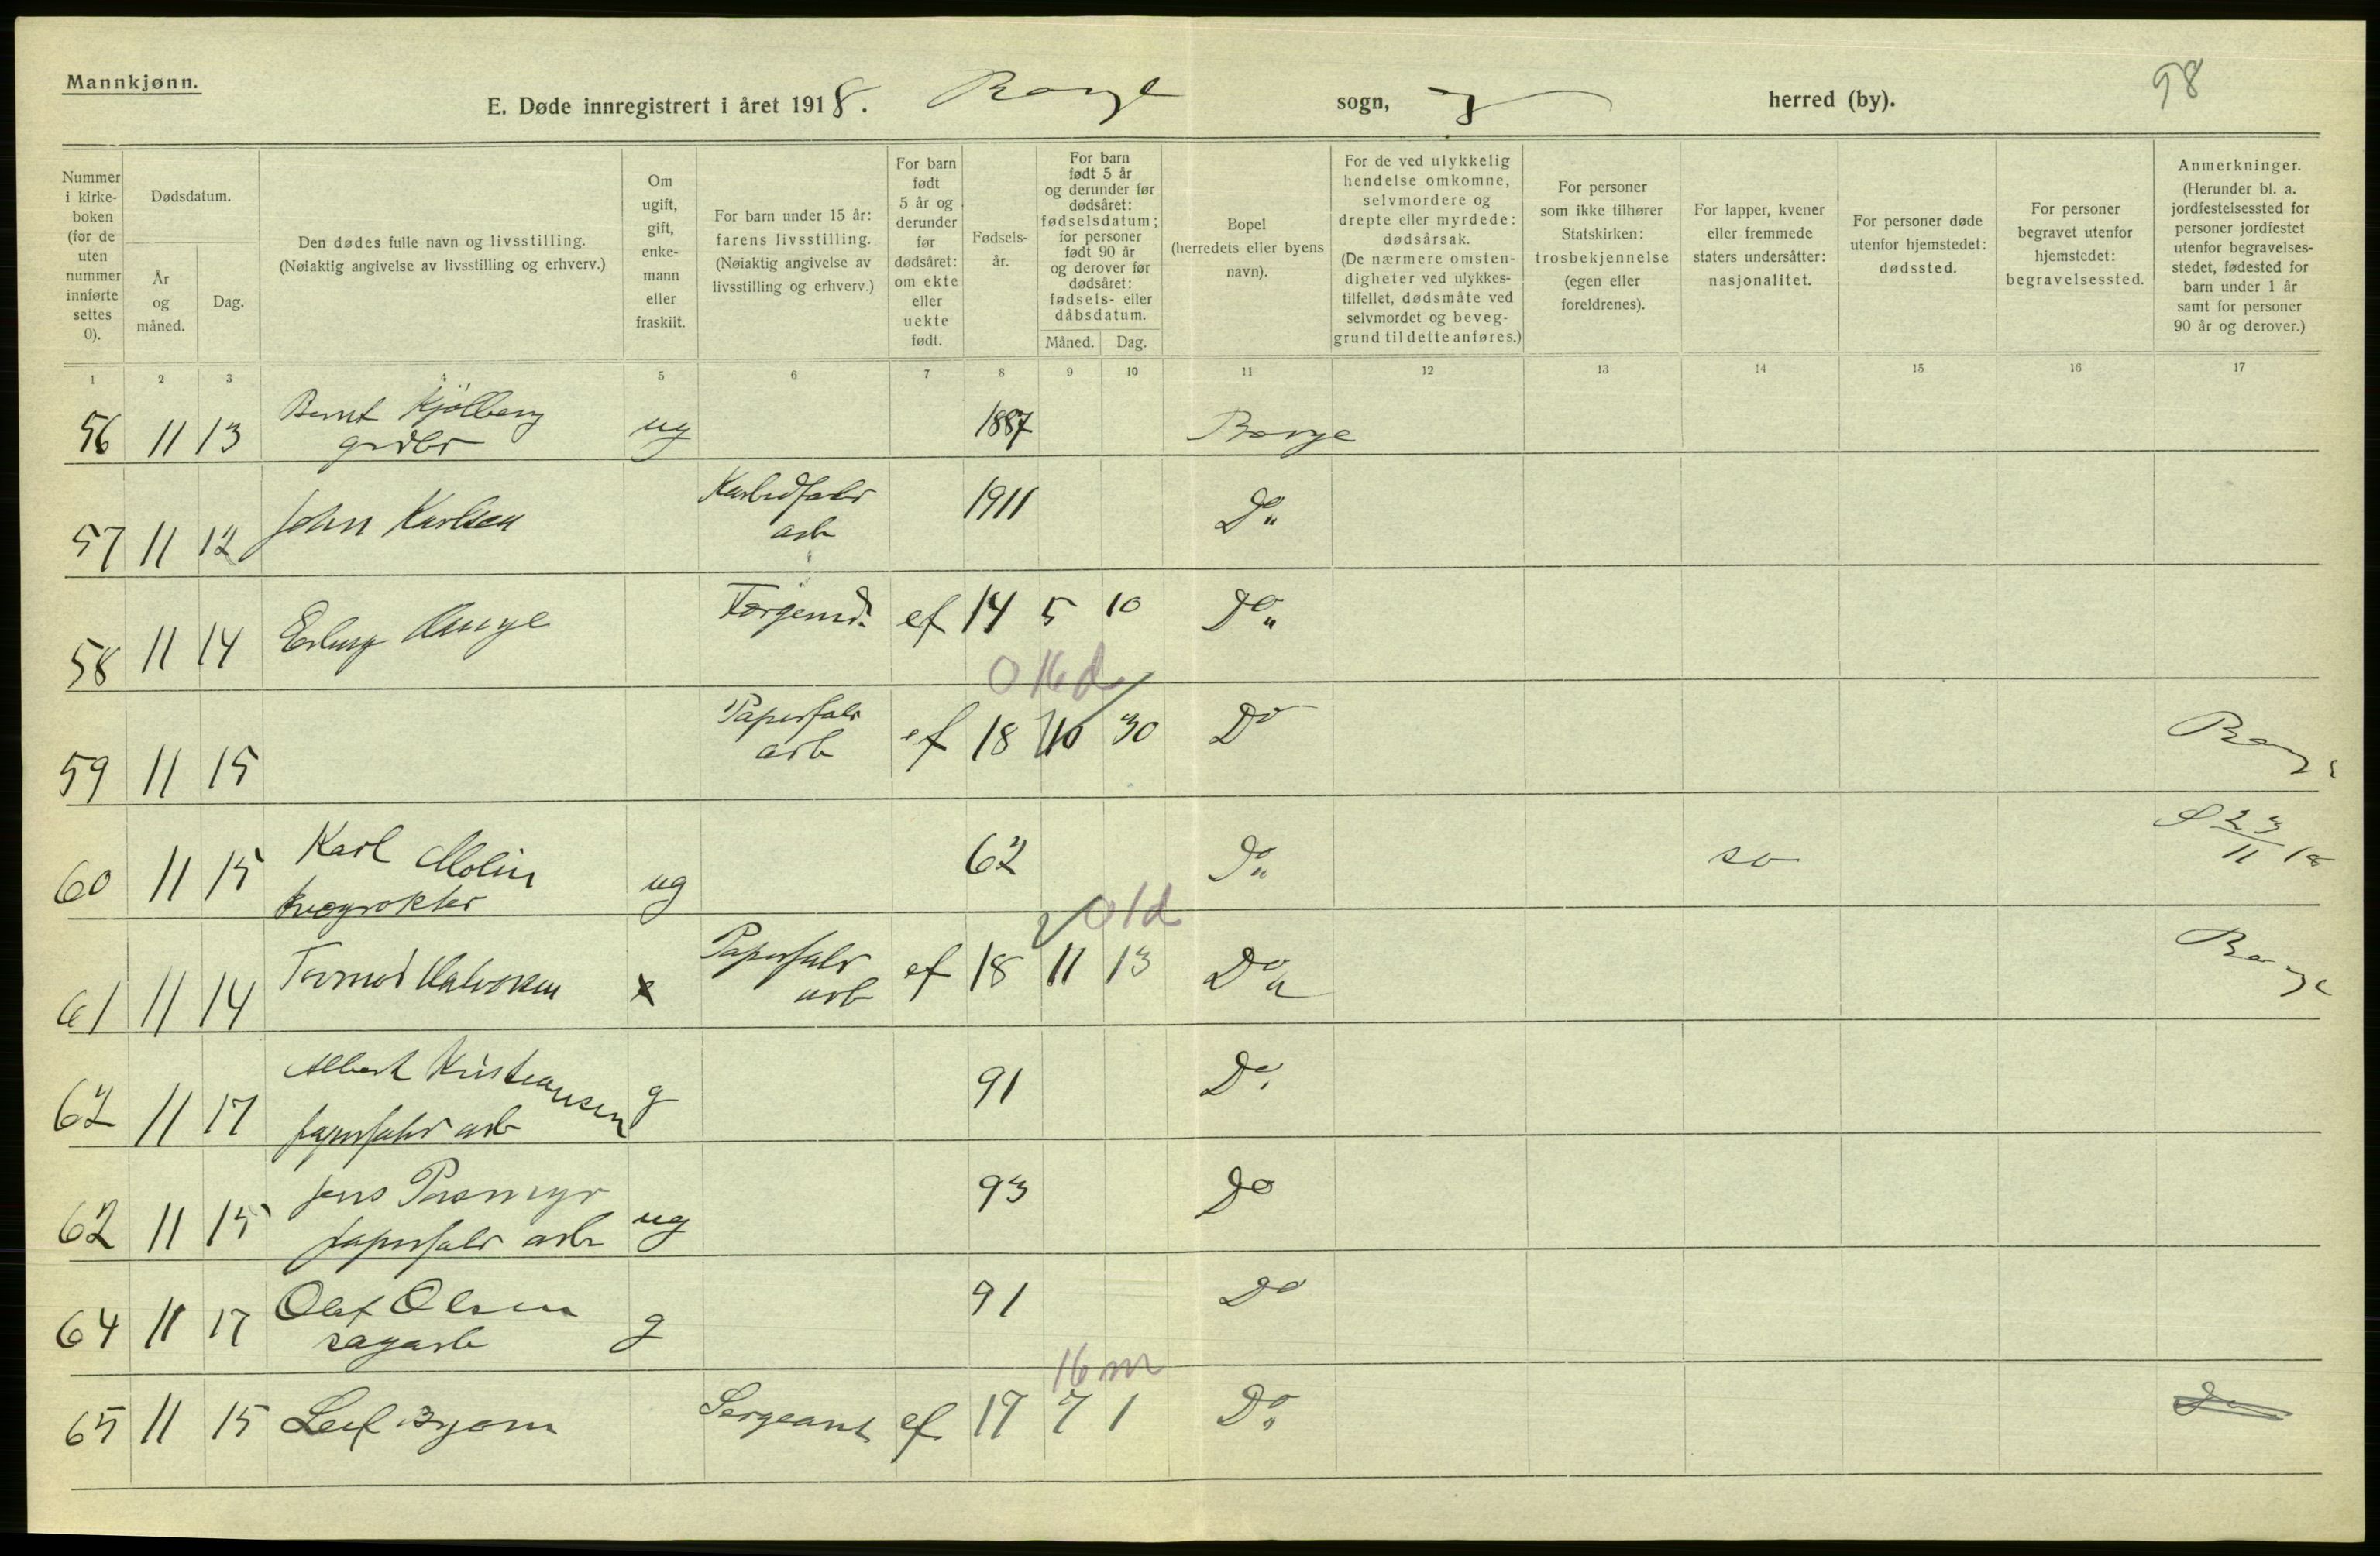 Mannkjønn.
98
E. Døde innregistrert i året 1918. Borge sogn, herred (by).
Nummer i kirke- boken (for de uten nummer innførte settes 0).
Dødsdatum.
År og måned.
Dag.
Den dødes fulle navn og livsstilling.
(Nøiaktig angivelse av livsstilling og erhverv.)
Om ugift, gift, enke- mann eller fraskilt.
For barn under 15 år: farens livsstilling. (Nøiaktig angivelse av livsstilling og erhverv.)
For barn født 5 år og derunder før dødsåret: om ekte eller uekte født.
Fødsels- år.
For barn født 5 år og derunder før dødsåret: fødselsdatum; for personer født 90 år og derover før dødsåret: fødsels- eller dåbsdatum.
Måned. Dag.
Bopel (herredets eller byens navn).
For de ved ulykkelig hendelse omkomne, selvmordere og drepte eller myrdede: dødsårsak. (De nærmere omsten- digheter ved ulykkes- tilfellet, dødsmåte ved selvmordet og beveg- grund til dette anføres.)
For personer som ikke tilhører Statskirken: trosbekjennelse (egen eller foreldrenes).
For lapper, kvener eller fremmede staters undersåtter: nasjonalitet.
For personer døde utenfor hjemstedet: dødssted.
For personer begravet utenfor hjemstedet: begravelsessted.
Anmerkninger.
(Herunder bl. a. jordfestelsessted for personer jordfestet utenfor begravelses- stedet, fødested for barn under 1 år samt for personer 90 år og derover.)
1 2 3 4 5 6 7 8 9 10 11 12 13 14 15 16 17
56 11 13 Bernt Kjölberg ug 1887 Borge
57 11 12 John Karlsen Karbidfabr arb 1911 Do
58 11 14 Erling Hauge ef 14 5 10 Do
0 16 d
59 11 15 Papirfabr arb ef 18 10 30 Do Borge
60 11 15 Karl Molin ug 62 Do so 23/11 18
0 1 d
61 11 14 Tormod Halvorsen x Papirfabr arb ef 18 11 13 Do Borge
62 11 17 Albert Kristiansen papirfabr arb g 91 Do
62 11 15 Jens papirfabr arb ug 93 Do
64 11 17 Olaf Olsen sagarb g 91 Do
16 m
65 11 15 Leif Bjørn Sergeant ef 17 7 1 Do Do